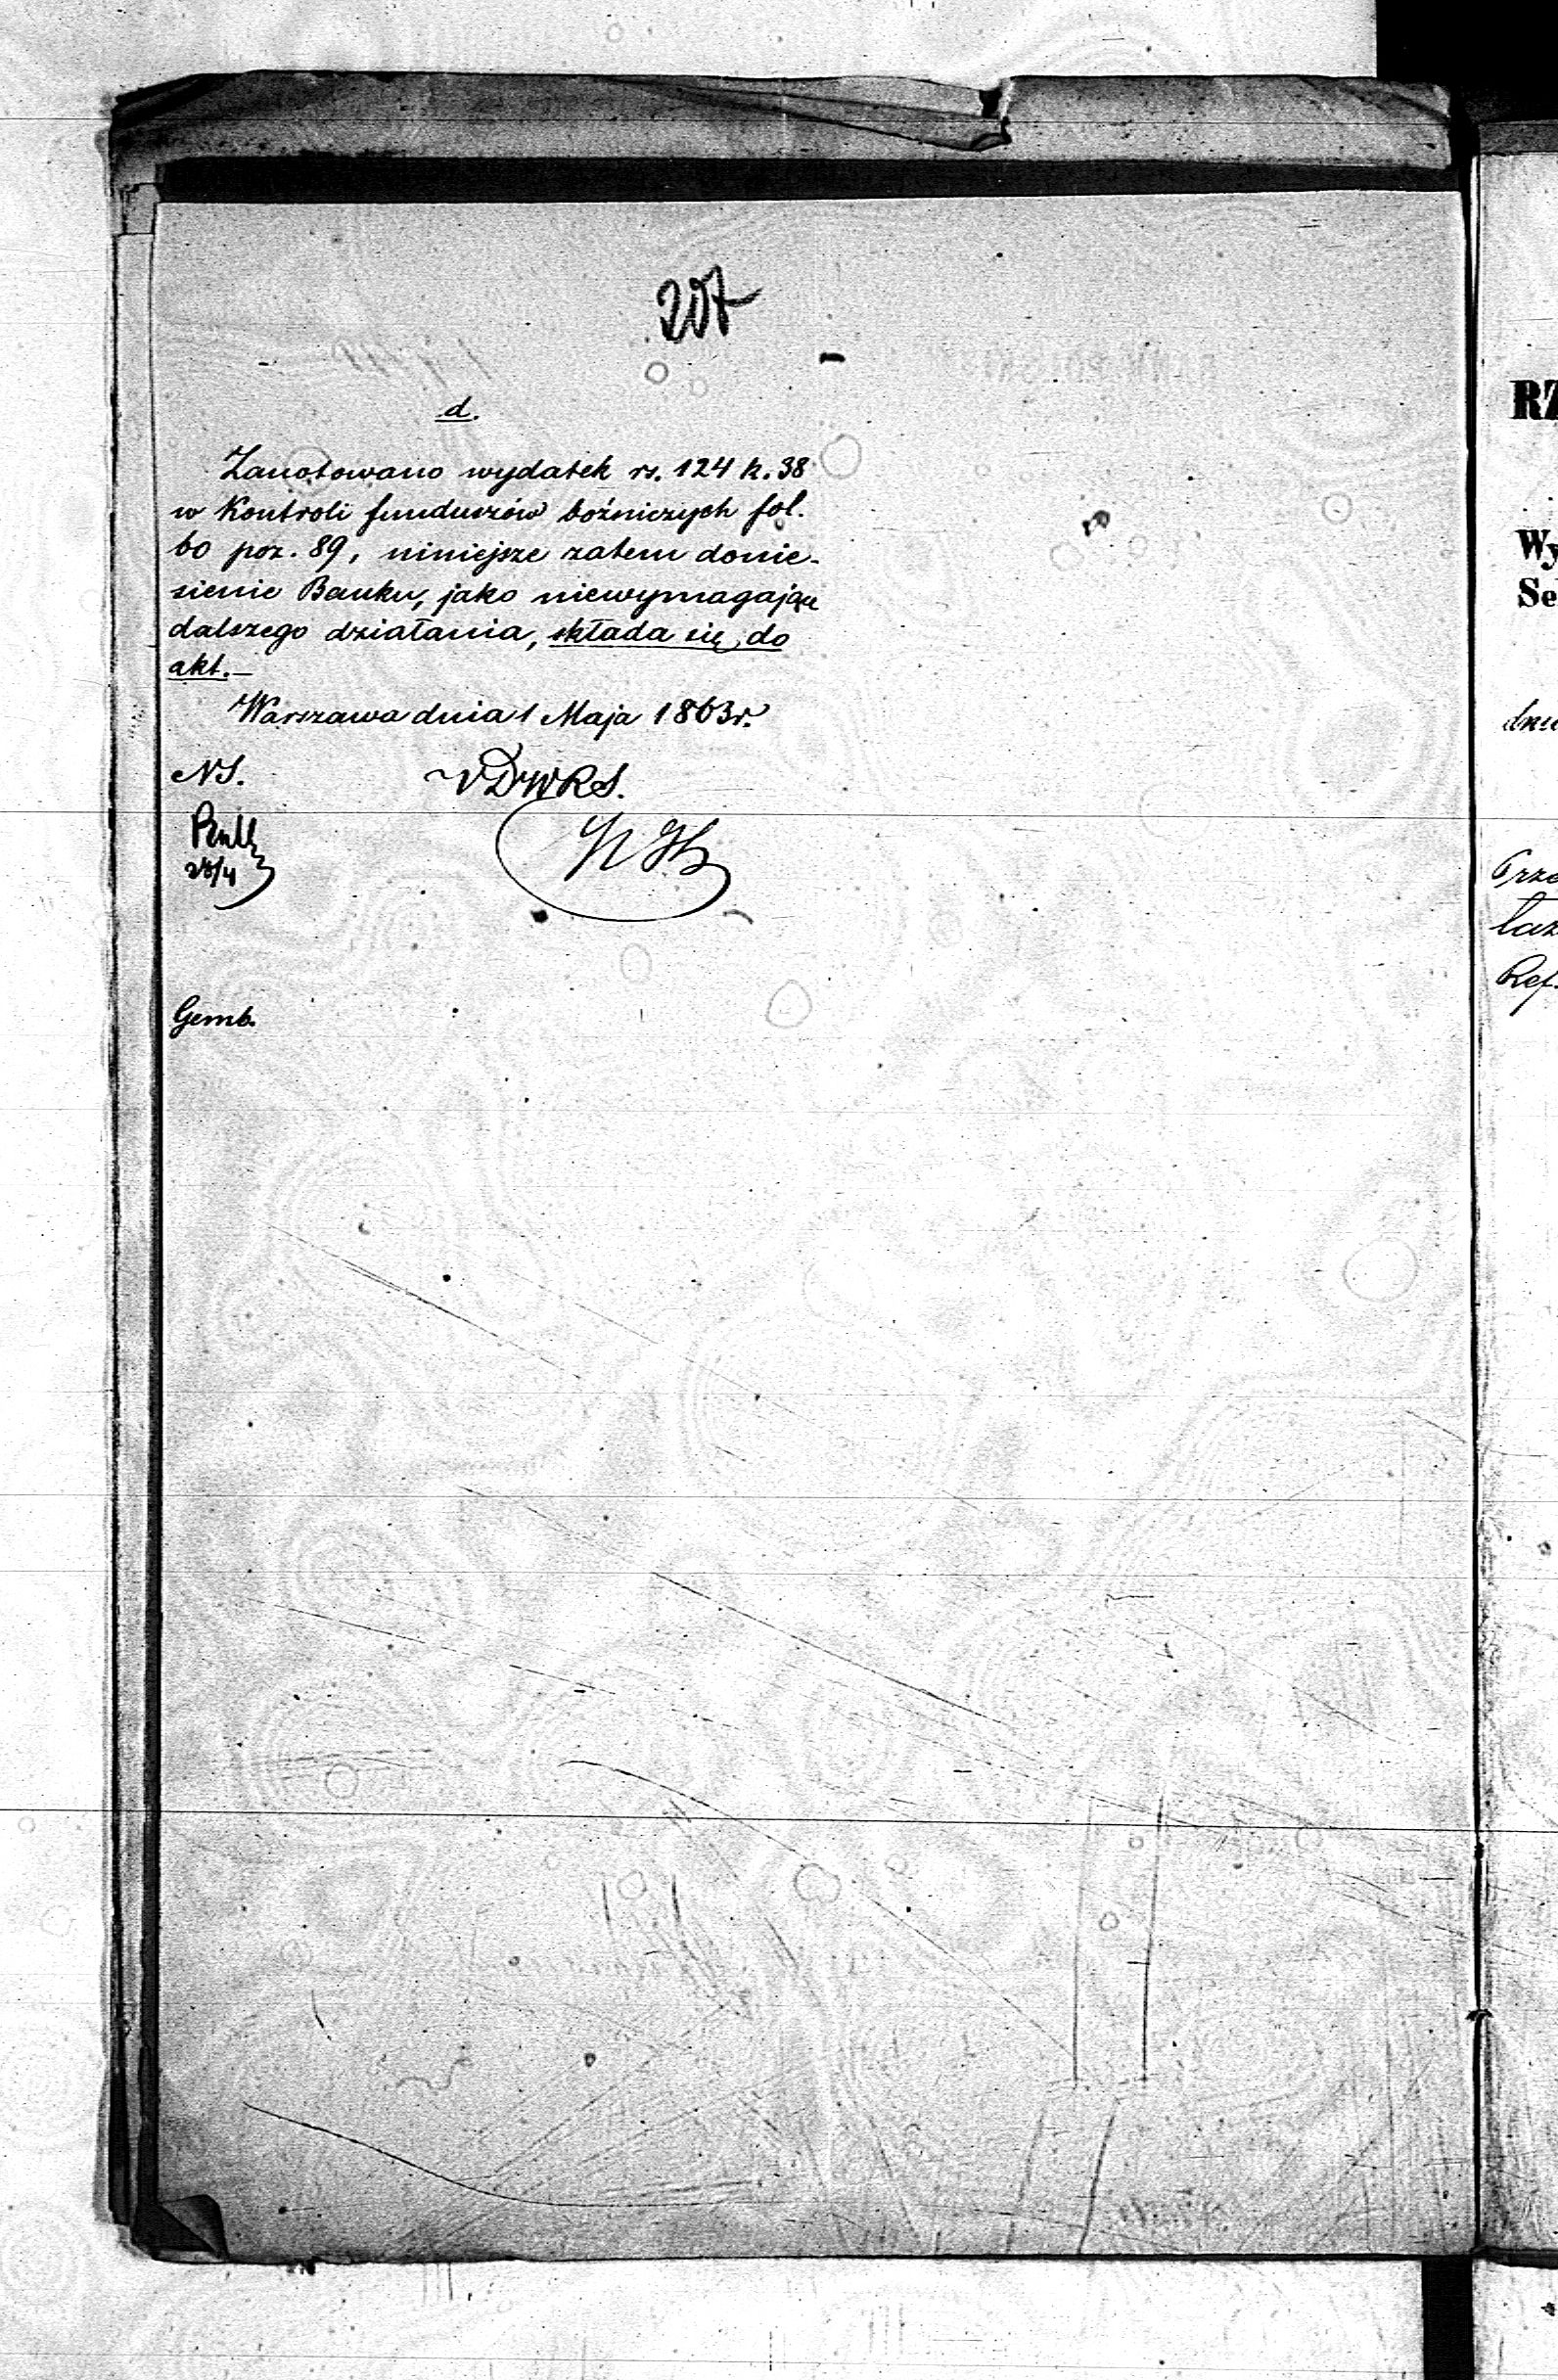 207
d.
Zanotowano wydatek rs. 124 k. 38
w Kontroli funduszów bożniczych fol.
60 poz. 89, niniejsze zatem donie-
sienie Banku, jako niewymagające
dalszego działania, składa się do
akt.—
Warszawa dnia 1 Maja 1863 r.
NS.
VDWRS.
28/4
Gemb.
RZ
Wy
Se
dnia
Prze
Ref.